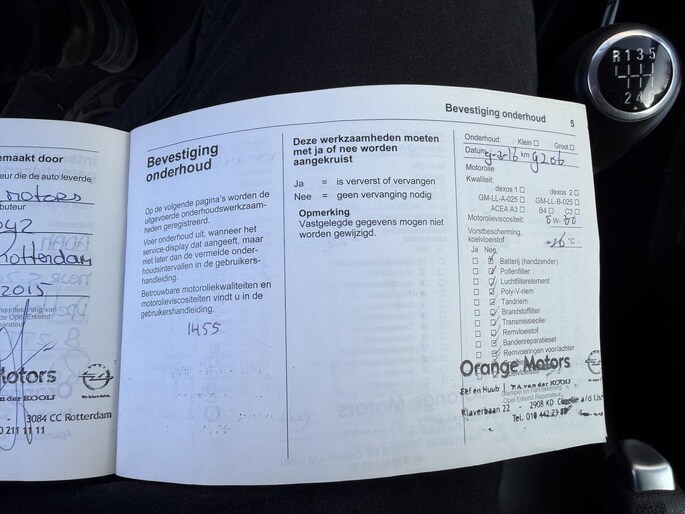 emaakt door
eur die de auto leverde
motors
buteur
042
Rotterdam
2015
Motors
an der KOOIJ
- 3084 CC Rotterdam
0 211 11 11
Bevestiging
onderhoud
Op de volgende pagina's worden de
uitgevoerde onderhoudswerkzaam-
heden geregistreerd.
Voer onderhoud uit, wanneer het
service-display dat aangeeft, maar
niet later dan de vermelde onder-
houdsintervallen in de gebruikers-
handleiding.
Betrouwbare motoroliekwaliteiten en
motorolieviscositeiten vindt u in de
gebruikershandleiding.
1455
Deze werkzaamheden moeten
met ja of nee worden
aangekruist
Ja = is ververst of vervangen
Nee = geen vervanging nodig
Opmerking
Vastgelegde gegevens mogen niet
worden gewijzigd.
Bevestiging onderhoud 5
Onderhoud: Klein Groot
Datum km 9206
Motorolie
Kwaliteit:
dexos 1 dexos 2
GM-LL-A-025 GM-LL-B-025
ACEA A3 B4 C3
Motorolieviscositeit: W-
Vorstbescherming,
koelvloeistof °C
Ja Nee
Batterij (handzender)
Pollenfilter
Luchtfilterelement
Poly-V-riem
Tandriem
Brandstoffilter
Transmissieolie
Remvloeistof
Bandenreparatieset
Remvoeringen voor/achter
Orange Motors
Stef en Huub | P.A. van der KOOIJ
Stempel en handtekening
Opel Erkend Reparateur
Klaverbaan 22 - 2908 KD Capelle a/d IJssel
Tel. 010 442 23
R 1 3 5
2 4